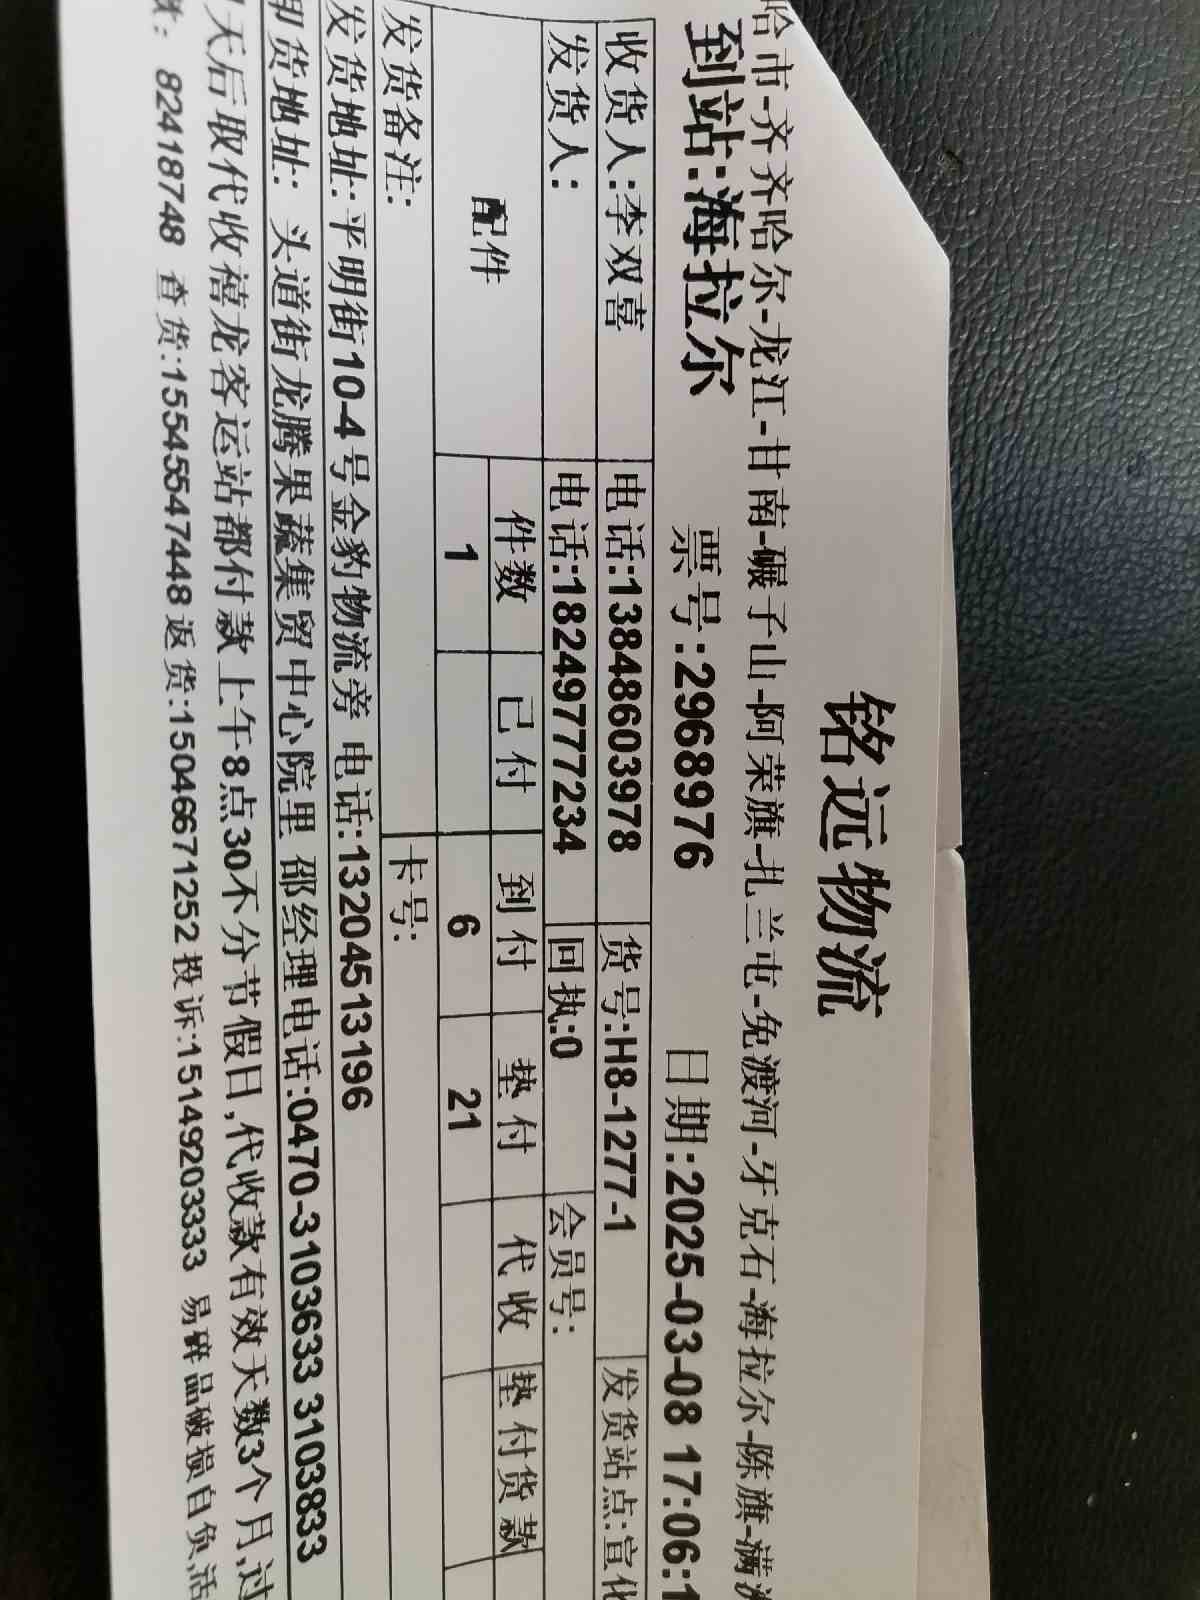 铭远物流
哈市-齐齐哈尔-龙江-甘南-碾子山-阿荣旗-扎兰屯-免渡河-牙克石-海拉尔-陈旗-满洲
到站:海拉尔 票号:2968976 日期:2025-03-08 17:06:1
收货人:李双喜 电话:13848603978 货号:H8-1277-1 发货站点:宣化
发货人: 电话:18249777234 回执:0 会员号:
配件 件数 已付 到付 垫付 代收 垫付货款
1 6 21
发货备注: 卡号:
发货地址:平明街10-4号金豹物流旁 电话:13204513196
卸货地址: 头道街龙腾果蔬集贸中心院里 邵经理电话:0470-3103633 3103833
天后取代收禧龙客运站都付款上午8点30不分节假日,代收款有效天数3个月,过
款: 82418748 查货:15545547448 返货:15046671252 投诉:15149203333 易碎品破损自负,活